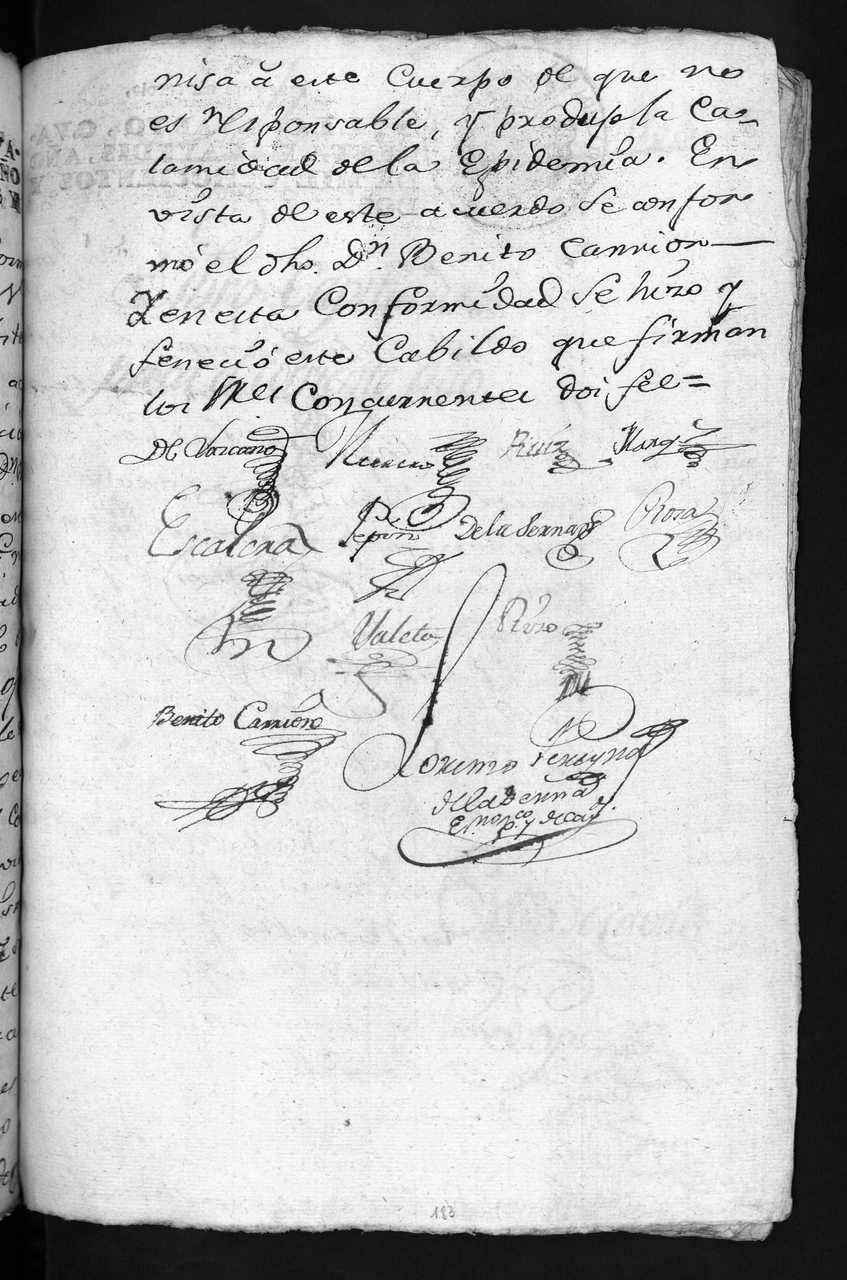 nisa à este Cuerpo de que no
es responsable, y produjo la Ca-
lamidad de la Epidemia. En
vista de este acuerdo se confor
mó el dho. Dn. Benito Carrion
Y en esta Conformidad se hizo y
feneció este Cabildo que firman
los Concurrentes doi fee=
Ruiz Marqz
Escalera Pepin De la Serna Rosa
Rizo
Benito Carrion
Lorenzo
de la Serna